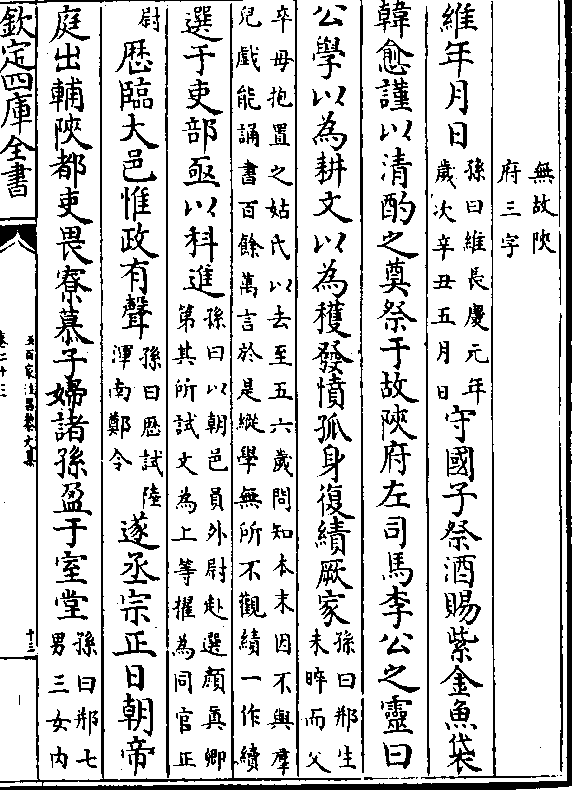 無故陝
府三字
維年月日孫曰維長慶元年歲次辛丑五月日守國子祭酒賜紫金魚袋
韓愈謹以清酌之奠祭于故陝府左司馬李公之靈曰
公學以為耕文以為穫發憤孤身復績厥家孫曰邢生未晬而父
卒毋抱置之姑氏以去至五六歲問知本末因不與羣
兒戲能誦書百餘萬言於是縱學無所不觀績一作續
選于吏部亟以科進孫曰以朝邑員外尉赴選顔真卿第其所試文為上等擢為同官正
尉歴臨大邑惟政有聲孫曰歴試陸渾南鄭令遂丞宗正日朝帝
庭出輔陝都吏畏寮慕子婦諸孫盈于室堂孫曰邢七男三女内
欽定四庫全書
五百家注昌黎文集
卷二十三
十三